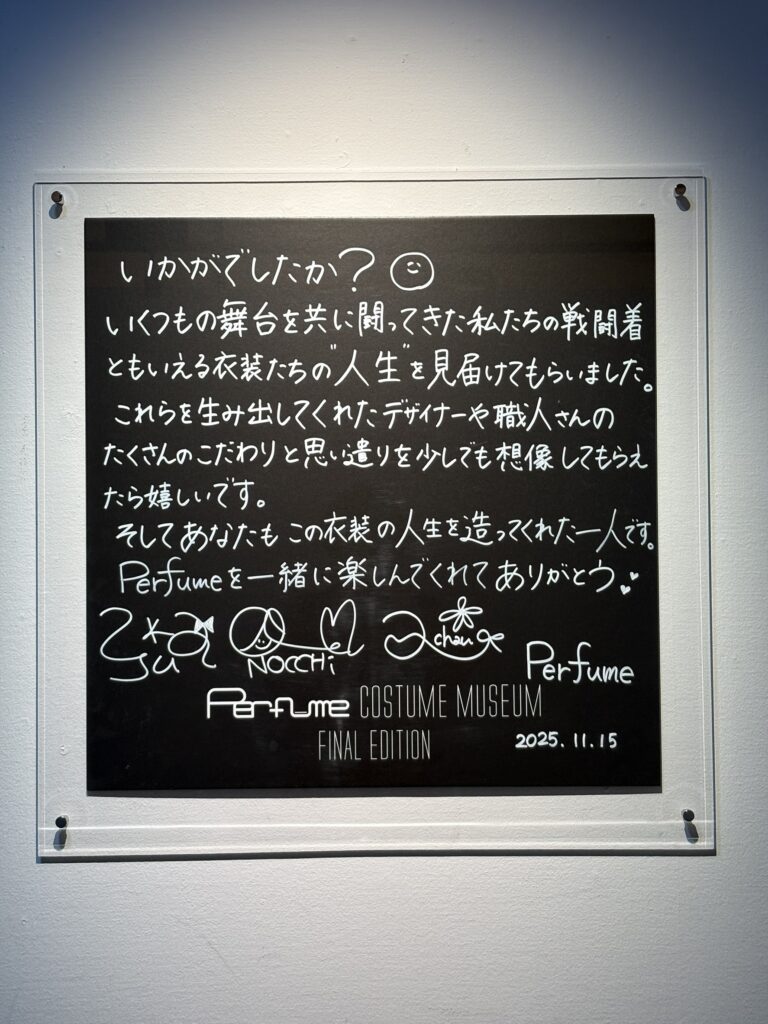 いかがでしたか?
いくつもの舞台を共に闘ってきた私たちの戦闘着
ともいえる衣装たちの"人生"を見届けてもらいました。
これらを生み出してくれたデザイナーや職人さんの
たくさんのこだわりと思い遣りを少しでも想像してもらえ
たら嬉しいです。
そしてあなたもこの衣装の人生を造ってくれた一人です。
Perfumeを一緒に楽しんでくれてありがとう
NOCCHi
a chan
Perfume
Perfume COSTUME MUSEUM
FINAL EDITION
2025.11.15